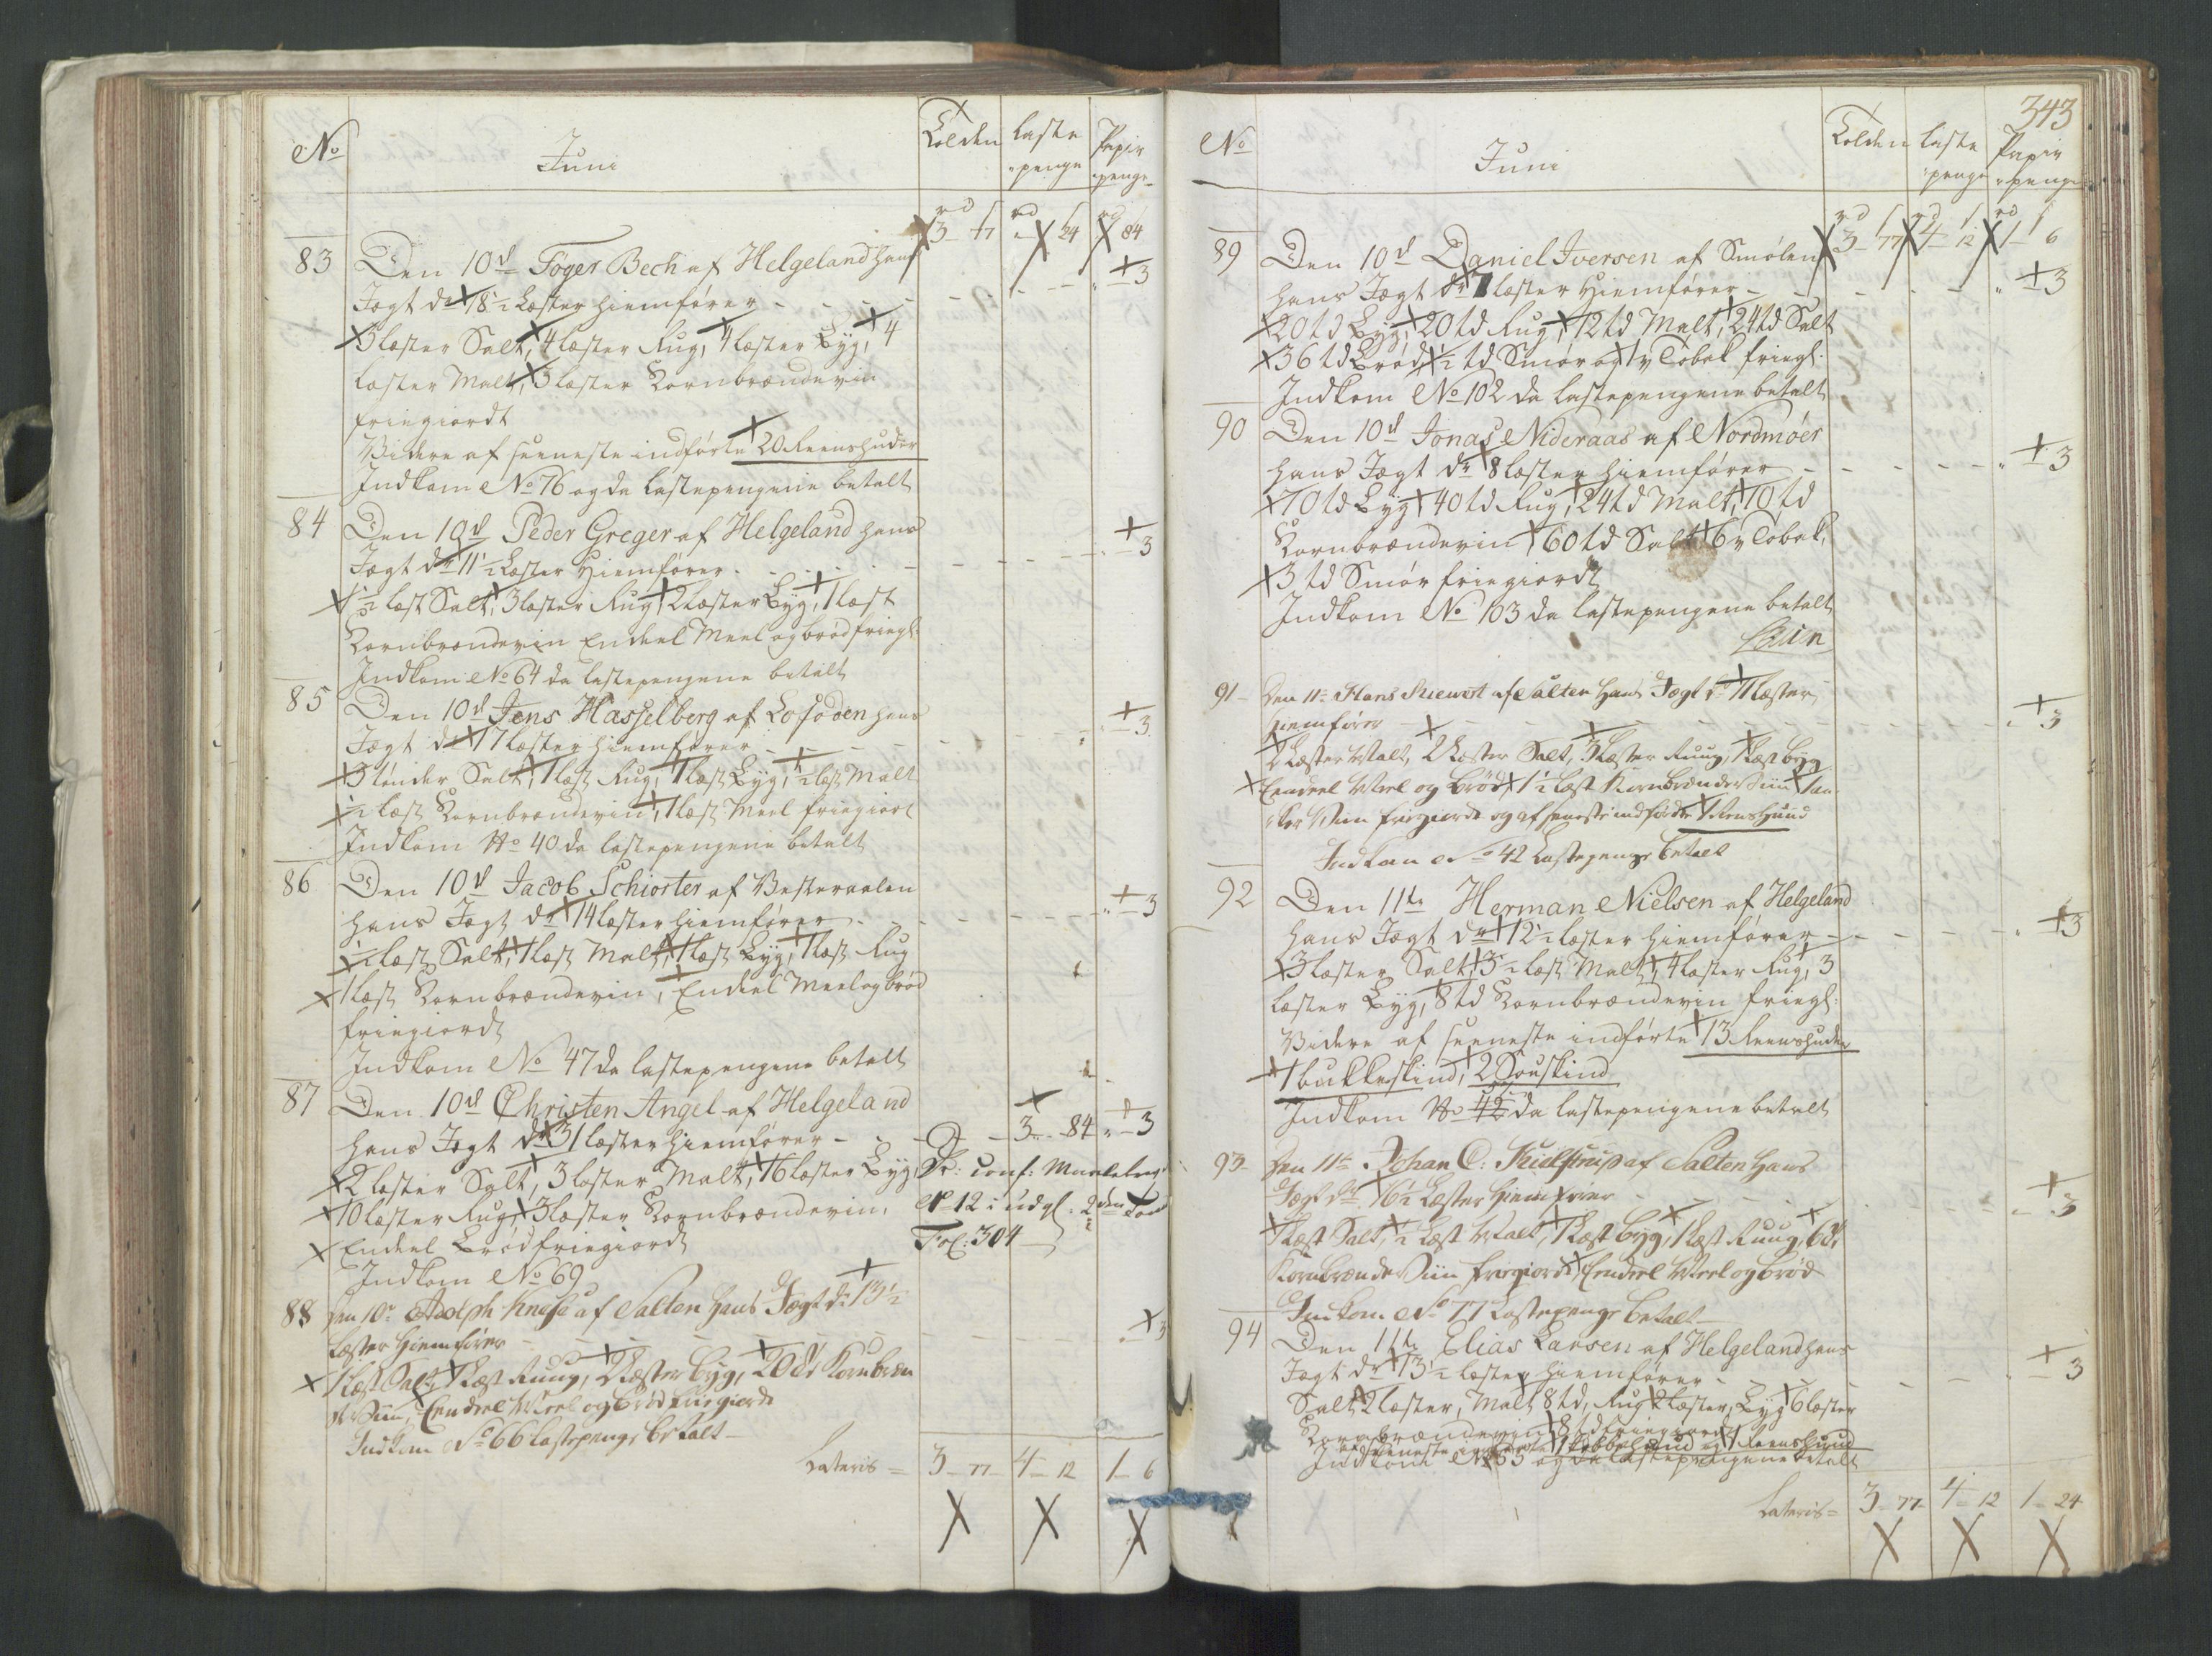 No
Juni
Tolden
laste
penge
Papir
penge
rd
rd
rd
3 77
" 24
" 84
83
Den 10de Töger Bech af Helgeland hans
Jægt dr 18½ Læster hiemfører
" 3
3 læster Salt, 4 læster Rug, 4 læster Byg, 4
læster Malt, 3 læster Kornbrændevin
friegiordt
Videre af seeneste indførte 20 Reenshuder
Indkom No 76 og da lastepengene betalt
84
Den 10de Peder Greger af Helgeland hans
Jægt dr 11½ Læster Hiemfører
" 3
1½ læst Salt, 3 læster Rug, 2 læster Byg, 1 læst
Kornbrændevin Endeel Meel og brød friegl:
Indkom No 64 da lastepengene betalt
85
Den 10de Jens Hasselberg af Lofoden hans
Jægt dr 17 læster hiemfører
" 3
3 tønder Salt, 1 læst Rug, 1 læst Byg, ½ læst Malt
½ læst Kornbrændevin, 1 læst Meel friegiort
Indkom No 40 da lastepengene betalt
86
Den 10de Jacob Schiorter af Vesteraalen
hans Jægt dr 14 læster hiemfører
" 3
½ læst Salt, 1 læst Malt, 1 læst Byg, 1 læst Rug
1 læst Kornbrændevin, Endeel Meel og brød
friegiordt
Indkom No 47 da lastepengene betalt
87
Den 10de Christen Angel af Helgeland
hans Jægt dr 31 læster hiemfører
3 84 " 3
2 læster Salt, 3 læster Malt, 16 læster Byg
10 læster Rug, 3 læster Kornbrændevin,
No 12 i udgl: 2den
Endeel Brød friegiordt
Fol: 304
Indkom No 69
88
Den 10de Adolph Knese af Salten hans Jægt dr 13½
Læster hiemfører
" 3
1 Læst Salt, 1 Læst Ruug, 2 Læster byg, 20 td Kornbræn
deViin, Eendeel Meel og brød friegiordt
Indkom No 66 lastepenge betalt
Lateris = 3 77 4 12 1 6
343
No
Juni
Tolden
laste
penge
Papir
penge
rd
rd
rd
3 77
4 12
1 6
89
Den 10de Daniel Iversen af Smølen
hans Jægt dr 7 læster Hiemfører
" 3
20 td Byg, 20 td Rug, 12 td Malt, 24 td Salt
36 td Brød, ½ td Smør og 1 v Tobak friegl:
Indkom No 102 da lastepengene betalt
90
Den 10de Jonas Nideraas af Nordmöer
hans Jægt dr 8 læster hiemfører
" 3
70 td Byg, 40 td Rug, 24 td Malt, 10 td
Kornbrændevin, 60 td Salt, 6 v Tobak,
3 td Smør friegiordt
Indkom No 103 da lastepengene betalt
91
Den 11te Hans Siewert af Salten Hans Jægt dr 11 Læster
hiemfører
" 3
2 Læster Malt, 2 Læster Salt, 3 Læster Ruug, 1 Læst byg
Eendeel Meel og brød, 1½ Læst KornbrændeViin, 1 an
ker Viin friegiordt og af seneste indførdte 1 Reenshuud
Indkom No 42 Lastepenge betalt
92
Den 11te Herman Nielsen af Helgeland
hans Jægt dr 12½ læster hiemfører
" 3
3 læster Salt, 3½ læst Malt, 4 læster Rug, 3
læster Byg, 8 td Kornbrændevin friegl:
Videre af seeneste indførte 13 Reenshuder
1 bukkeskind, 2 Souskind
Indkom No da lastepengene betalt
93
Den 11te Johan C: Kielstrup af Salten Hans
Jægt dr 16½ Læster hiemfører
" 3
1 Læst Salt, ½ Læst Malt, 1 Læst byg, 1 Læst Ruug, 6 td
KornbrændeViin friegiordt, Eendeel Meel og brød
Indkom No 77 Lastepenge betalt
94
Den 11te Elias Larsen af Helgeland hans
Jægt dr 13½ læster hiemfører
" 3
Salt 2 læster, Malt 8 td, Rug 2 læster, Byg 6 læster
Kornbrændevin 8 td friegiordt
af seeneste indførte 1 Kobbehuud og 1 Reenshuud
Indkom No 55 og da lastepengene betalt
Lateris = 3 77 4 12 1 24